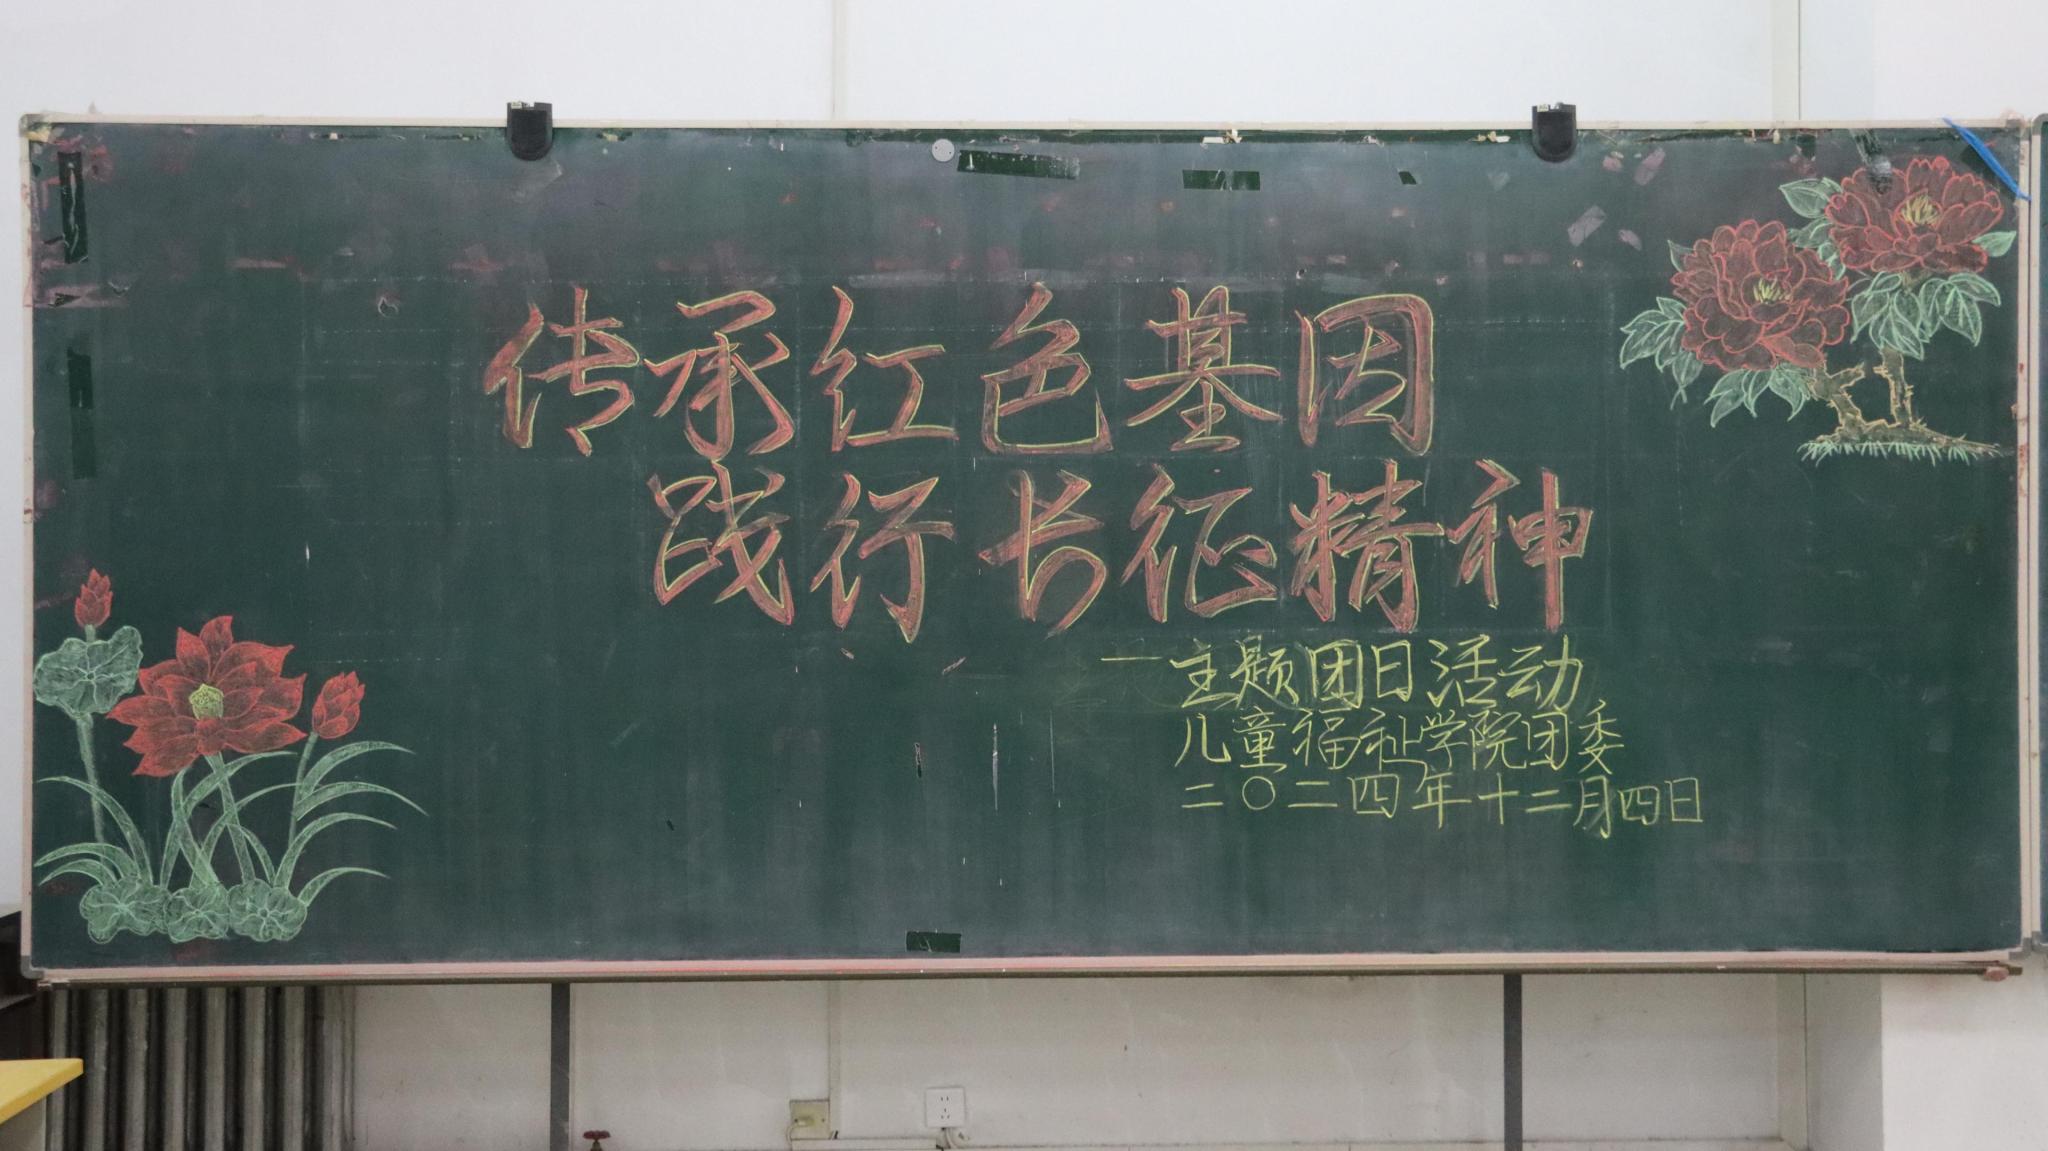 传承红色基因
践行长征精神
—主题团日活动
儿童福祉学院团委
二〇二四年十二月四日